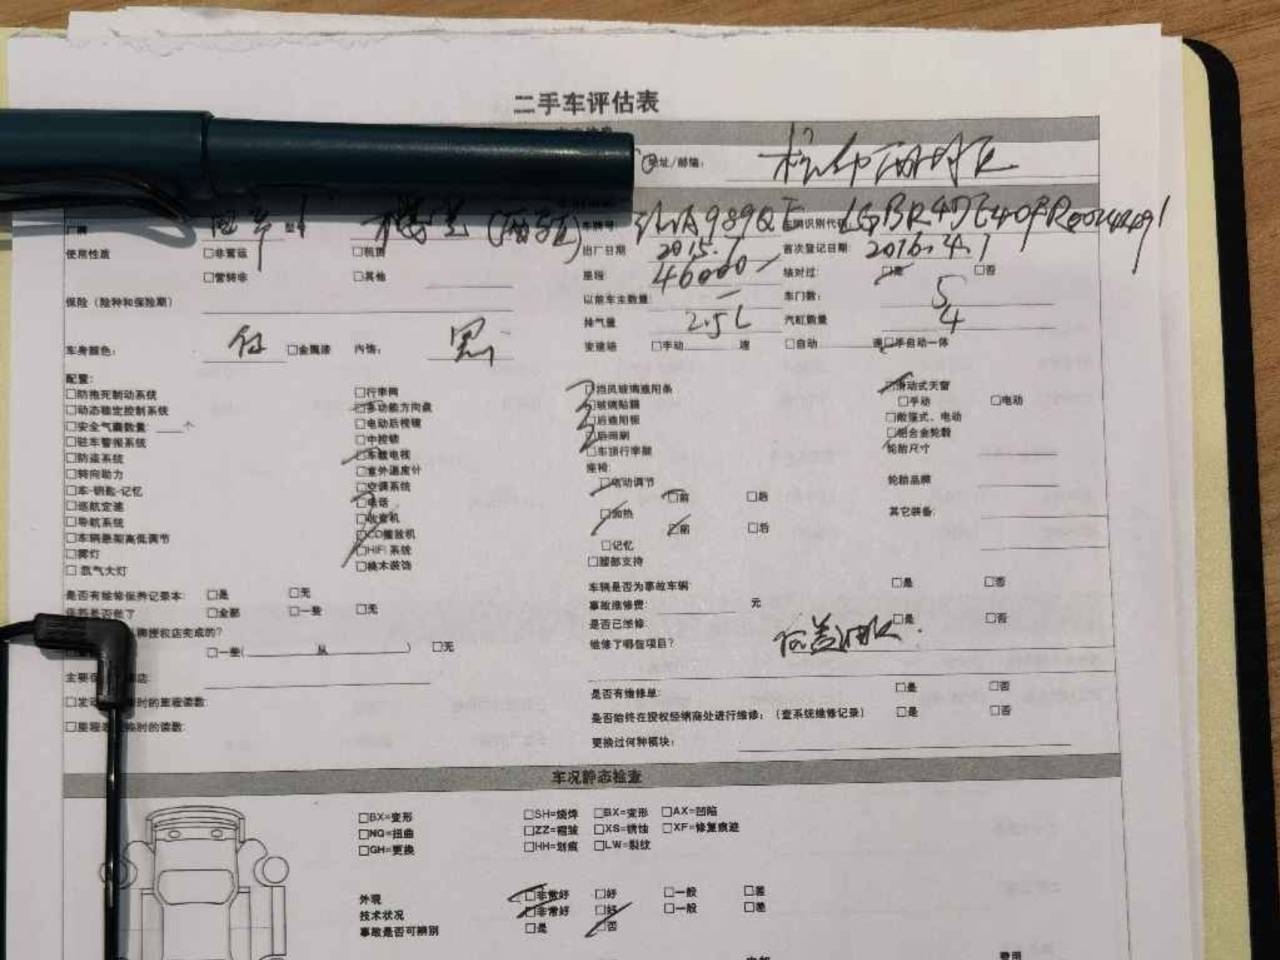 二手车评估表
址/邮编：
厂牌 型 车牌号 A989QE 车辆识别代
使用性质 □非营运 □租赁 出厂日期 2015.7 首次登记日期: 2016.4.1
□营转非 □其他 里程 46000 核对过: □是 □否
保险（险种和保险期） 以前车主数量 车门数: 5
排气量 2.5L 汽缸数量 4
车身颜色: □金属漆 内饰: 黑 变速箱 □手动 速 □自动 速□手自动一体
配置:
□防抱死制动系统 □行李网 □挡风玻璃遮阳条 □滑动式天窗
□动态稳定控制系统 □多功能方向盘 □玻璃贴膜 □手动 □电动
□安全气囊数量: 个 □电动后视镜 □后遮阳板 □敞篷式、电动
□驻车警报系统 □中控锁 □后雨刷 □铝合金轮毂
□防盗系统 □车载电视 □车顶行李架 轮胎尺寸
□转向助力 □室外温度计 座椅:
□车-钥匙-记忆 □空调系统 □电动调节 轮胎品牌
□巡航定速 □电话 □前 □后
□导航系统 □收音机 □加热 其它装备:
□车辆悬架高低调节 □CD播放机 □前 □后
□雾灯 □HIFI系统 □记忆
□氙气大灯 □桃木装饰 □腰部支持
是否有维修保养记录本: □是 □无 车辆是否为事故车辆: □是 □否
□全部 □一些 □无 事故维修费: 元
牌授权店完成的? 是否已维修: □是 □否
□一些( 从 ) □无 维修了哪些项目?
主要保 店:
□发动 时的里程读数: 是否有维修单: □是 □否
□里程 换时的读数: 是否始终在授权经销商处进行维修：（查系统维修记录） □是 □否
更换过何种模块:
车况静态检查
□BX=变形 □SH=烧焊 □BX=变形 □AX=凹陷
□NG=扭曲 □ZZ=褶皱 □XS=锈蚀 □XF=修复痕迹
□GH=更换 □HH=划痕 □LW=裂纹
外观 □非常好 □好 □一般 □差
技术状况 □非常好 □好 □一般 □差
事故是否可辨别 □是 □否
费用